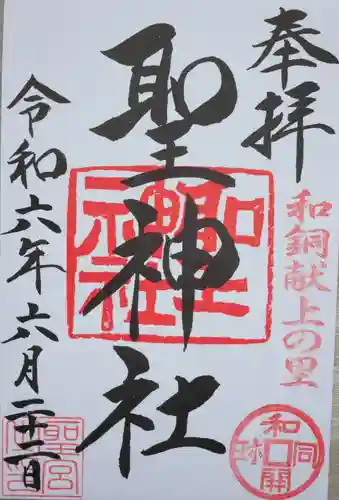 奉拝
和銅献上の里
聖神社
令和六年六月二十二日
和同開珎